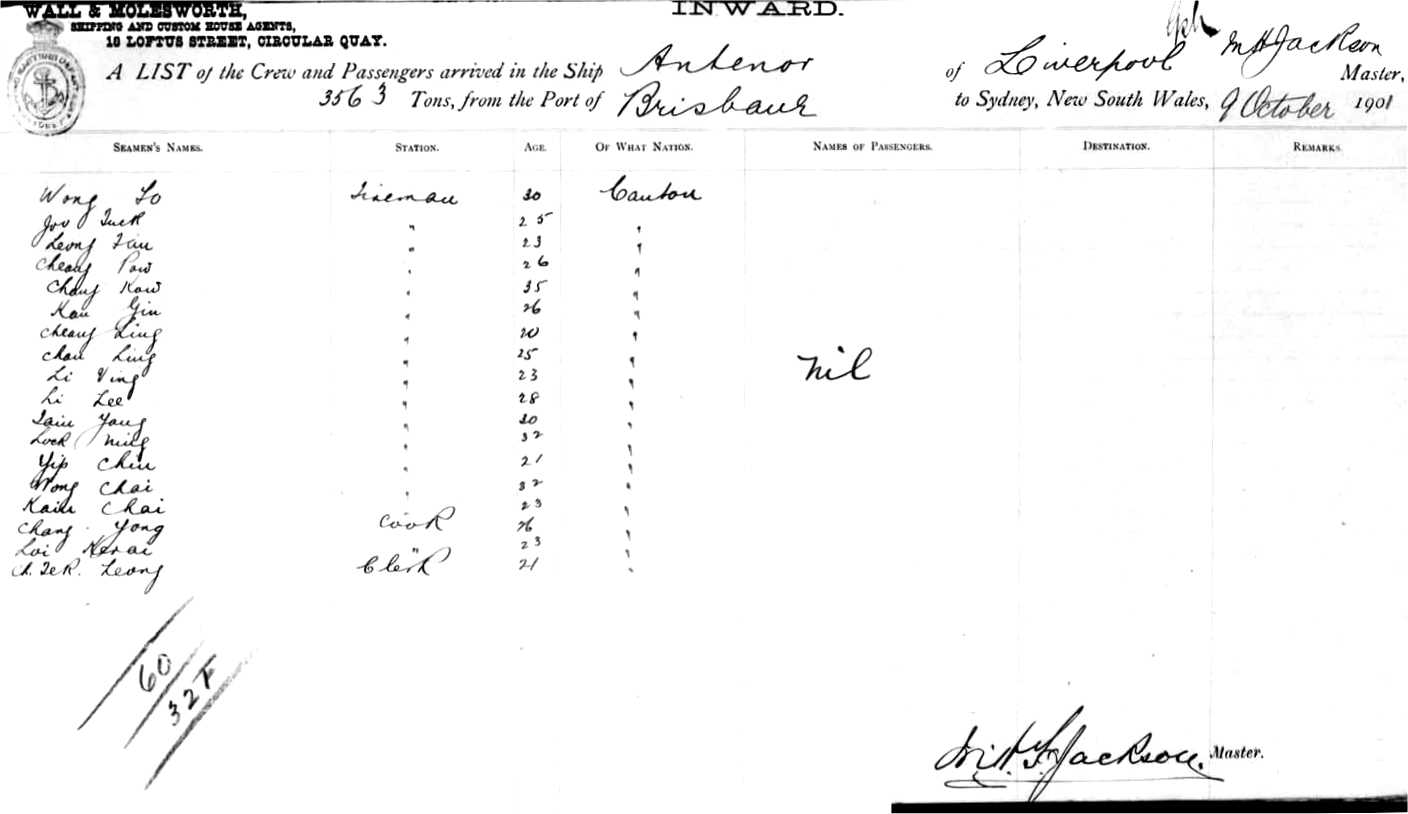 WALL & MOLESWORTH,
SHIPPING AND CUSTOM HOUSE AGENTS,
16 LOFTUS STREET, CIRCULAR QUAY.
INWARD.
A LIST of the Crew and Passengers arrived in the Ship Antenor of Liverpool M H Jackson Master,
3563 Tons, from the Port of Brisbane to Sydney, New South Wales, 9 October 1901
SEAMEN'S NAMES. STATION. AGE. OF WHAT NATION. NAMES OF PASSENGERS. DESTINATION. REMARKS.
Wong Lo Fireman 30 Canton
Jov Tuck " 25 "
Leong Fan " 23 "
Cheang Pow " 26 "
Chang Kow " 35 "
Kan Gin " 26 "
Cheang Ling " 20 "
Chan Ling " 25 "
Li Ving " 23 " Nil
Li Lee " 28 "
Yong " 30 "
Lock Ming " 32 "
Yip Chin " 21 "
Wong Chai " 32 "
Kaim Chai " 23 "
Chang Yong Cook 26 "
Loi " 23 "
Ch. Tek. Leong Clerk 21 "
60
32 F
M. H. F. Jackson. Master.